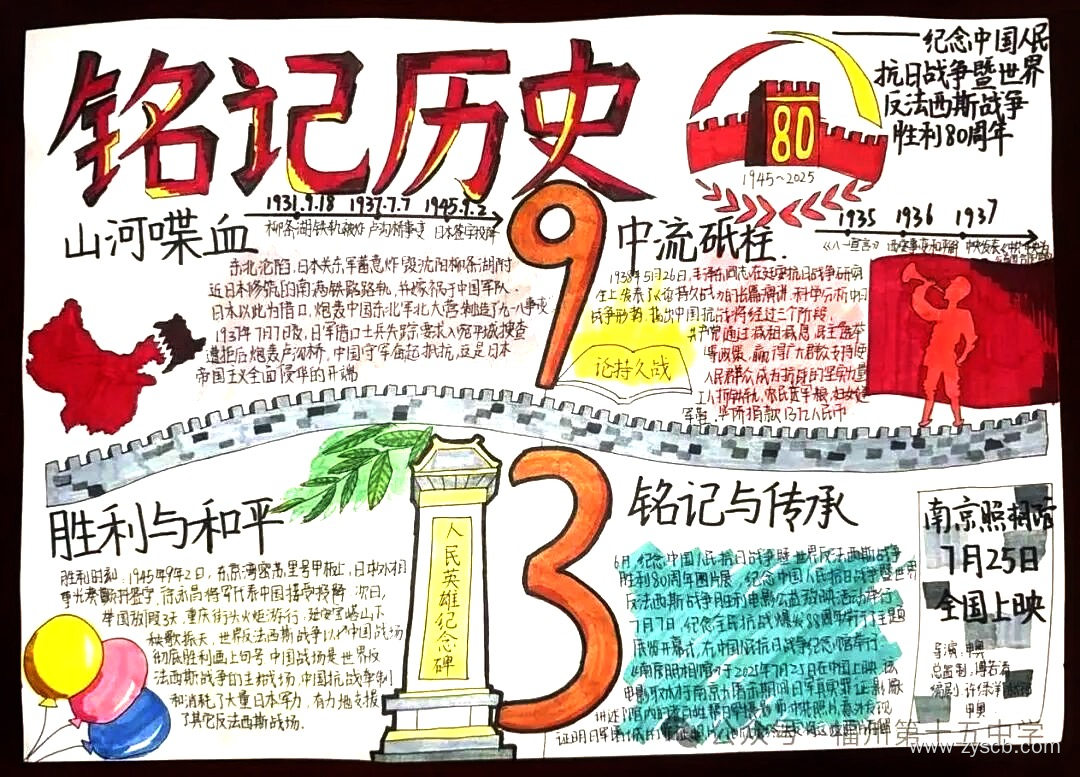 铭记历史
纪念中国人民
抗日战争暨世界
反法西斯战争
胜利80周年
80
1945~2025
1931.9.18 1937.7.7 1945.9.2
柳条湖铁轨被炸 卢沟桥事变 日本签字投降
山河喋血
东北沦陷,日本关东军蓄意炸毁沈阳柳条湖附
近日本修筑的南满铁路路轨,并嫁祸于中国军队
日本以此为借口,炮轰中国东北军北大营制造了九一八事变
1937年7月7日夜,日军借口士兵失踪要求入宛平城搜查
遭拒后炮轰卢沟桥,中国守军奋起抵抗,这是日本
帝国主义全面侵华的开端
9
中流砥柱
1935 1936 1937
《八一宣言》 西安事变和平
1938年5月26日,毛泽东同志在延安抗日战争研究
会上发表了《论持久战》的
战争形势,指出中国抗战将经过三个阶段
共产党通过减租减息,民主选举
等政策,赢得广大群众支持使
人民群众成为抗战的坚
论持久战
胜利与和平
胜利时刻:1945年9月2日,东京湾密苏里号甲板上,日本外相
重光葵颤抖签字,
举国放假3天,重庆街头火炬游行,延安宝塔山下
秧歌振天,世界反法西斯战争以中国战场
彻底胜利画上句号 中国战场是世界反
法西斯战争的主战场,中国抗战牵制
和消耗了大量日本军力,有力地支援
了其它反法西斯战场.
人民英雄纪念碑
3
铭记与传承
6月,纪念中国人民抗日战争暨世界反法西斯战争
胜利80周年图片展,纪念中国人民抗日战争暨世界
反法西斯战争胜利电影公益放映活动举行
7月7日,纪念全民抗战爆发88周年
在中国人民抗日战争纪念馆举行
《南京照相馆》于2025年7月25日在中国上映,该
电影取材于南京大屠杀期间日军真实罪证影像
南京照相馆
7月25日
全国上映
导演:申奥
总监制:傅若清
编剧:许
申奥
公众号·福州第十五中学
www.zyscb.com